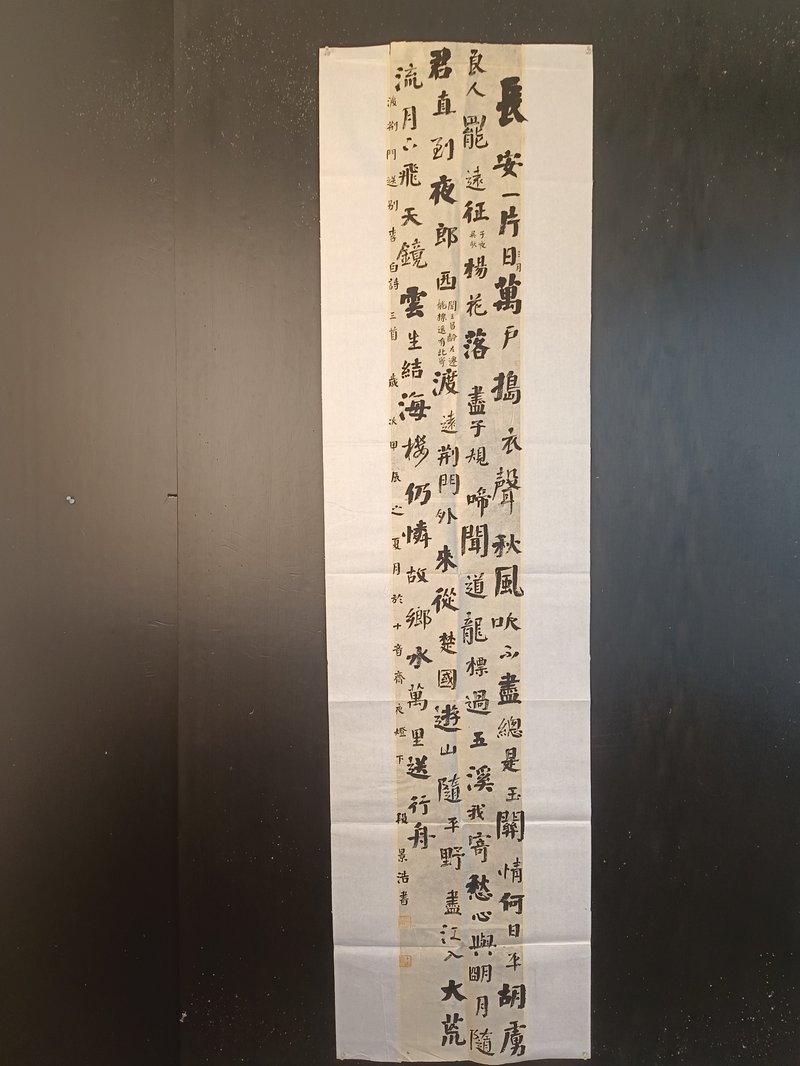 長安一片日月萬戶搗衣聲秋風吹不盡總是玉關情何日平胡虜
良人罷遠征子夜吳歌楊花落盡子規啼聞道龍標過五溪我寄愁心與明月隨
君直到夜郎西聞王昌齡左遷龍標遙有此寄渡遠荊門外來從楚國遊山隨平野盡江入大荒
流月下飛天鏡雲生結海楼仍憐故鄉水萬里送行舟
渡荊門送別李白詩三首歲次甲辰之夏月於十音齋夜燈下段景浩書